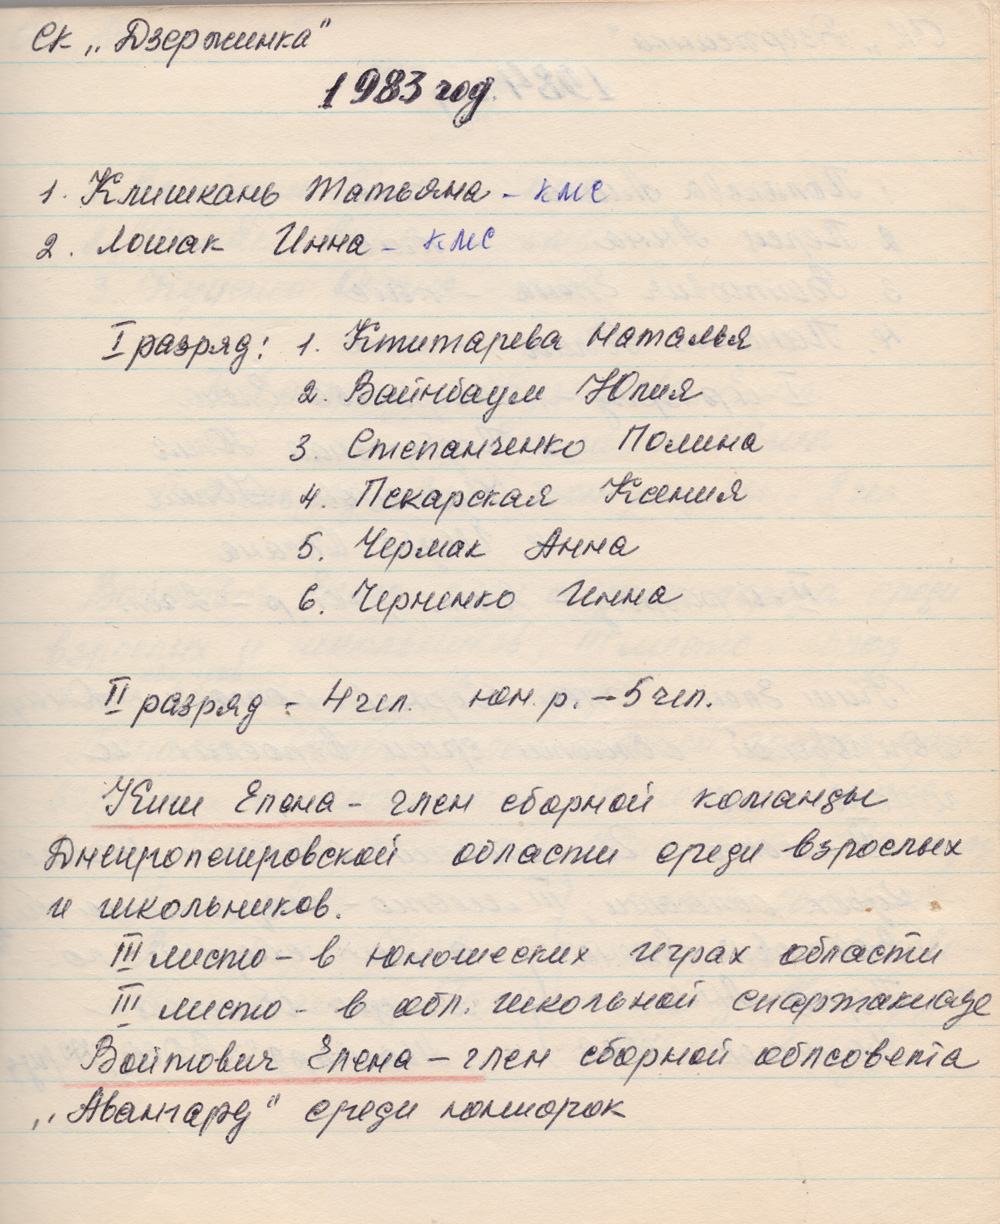 СК „Дзержинка"
1983 год.
1. Клишкань Татьяна - КМС
2. Лошак Инна - КМС
I разряд: 1. Ктитарева Наталья
2. Вайнбаум Юлия
3. Степанченко Полина
4. Пекарская Ксения
5. Чермак Анна
6. Черненко Инна
II разряд - 4 чел. юн. р. - 5 чел.
Киш Елена - член сборной команды
Днепропетровской области среди взрослых
и школьников.
III место - в юношеских играх области
III место - в обл. школьной спартакиаде
Войтович Елена - член сборной облсовета
„Авангард" среди юниорок